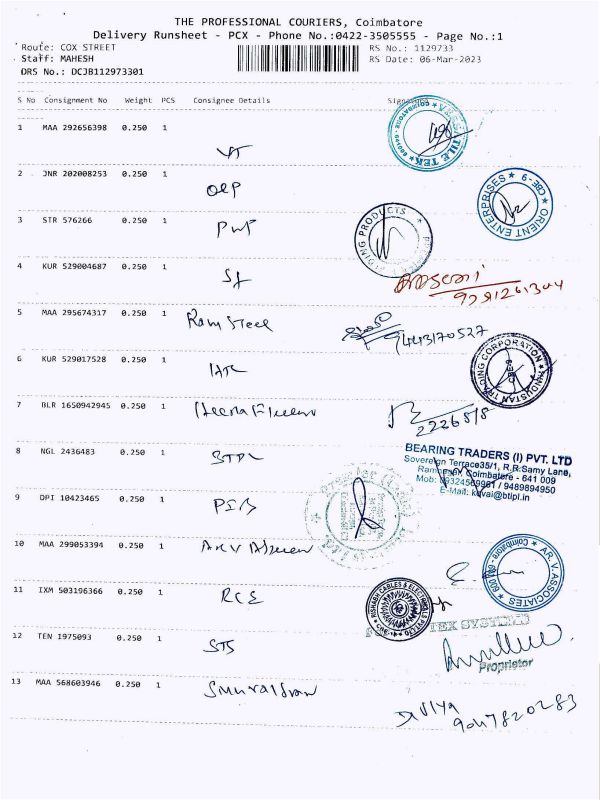 THE PROFESSIONAL COURIERS, Coimbatore
Delivery Runsheet - PCX - Phone No.:0422-3505555 - Page No.:1
Route: COX STREET RS No.: 1129733
Staff: MAHESH RS Date: 06-Mar-2023
DRS No.: DCJB112973301
S No Consignment No Weight PCS Consignee Details
1 MAA 292656398 0.250 1 VT
2 JNR 202008253 0.250 1 OEP
ORIENT ENTERPRISES ★ CBE-9 ★
3 STR 576266 0.250 1 PWP
PRODUCTS
4 KUR 529004687 0.250 1 SF
5 MAA 295674317 0.250 1 Ram Steel 9443170527
6 KUR 529017528 0.250 1 HTC
HINDUSTAN TRADING CORPORATION
7 BLR 1650942945 0.250 1
8 NGL 2436483 0.250 1 BTPL
BEARING TRADERS (I) PVT. LTD
Sovereign Terrace35/1, R.R.Samy Lane,
Coimbatore - 641 009
9489894950
E-Mail: kovai@btipl.in
9 DPI 10423465 0.250 1
10 MAA 299053394 0.250 1
AR. V. ASSOCIATES
11 IXM 503196366 0.250 1 RCE
RISHABH CABLES & ELECTRICALS
TEX SYSTEMS
12 TEN 1975093 0.250 1 STS
Proprietor
13 MAA 568603946 0.250 1
Divya
9047820283